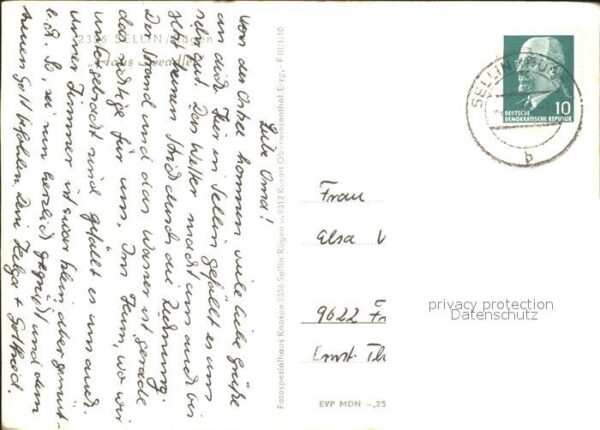 2356 SELLIN/Rügen
Liebe Oma!
von der Ostsee kommen viele liebe Grüße
an dich. Hier in Sellin gefällt es uns
sehr gut. Das Wetter macht uns auch bis
jetzt keinen Strich durch die Rechnung.
Der Strand und das Wasser ist gerade
das richtige für uns. Im Heim, wo wir
untergebracht sind gefällt es uns auch.
unser Zimmer ist zwar klein aber gemüt-
lich. So sei nun herzlich gegrüßt und dem
treuen Gott befohlen. Deine Helga + Gottfried.
Fotospezialhaus Knospe 2356 Sellin Rügen u. 9312 Kurort Oberwiesenthal Erzg. - F III/1/10
SELLIN (RÜG)
b
10
DEUTSCHE
DEMOKRATISCHE REPUBLIK
Frau
Elsa
9622
Ernst
EVP MDN -,25
privacy protection
Datenschutz